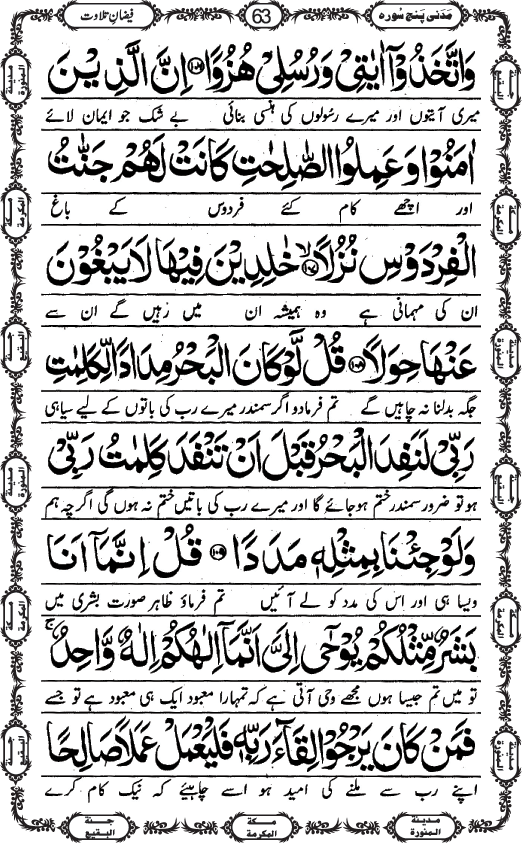 مَدَنی پَنج سُورہ
63
فیضانِ تلاوت
وَاتَّخَذُوْۤا اٰیٰتِیْ وَرُسُلِیْ هُزُوًا ﴿۱۰۶﴾ اِنَّ الَّذِیْنَ
میری آیتوں اور میرے رسولوں کی ہنسی بنائی بے شک جو ایمان لائے
اٰمَنُوْا وَعَمِلُوا الصّٰلِحٰتِ كَانَتْ لَهُمْ جَنّٰتُ
اور اچھے کام کئے فردوس کے باغ
الْفِرْدَوْسِ نُزُلًا ﴿۱۰۷﴾ خٰلِدِیْنَ فِیْهَا لَا یَبْغُوْنَ
ان کی مہمانی ہے وہ ہمیشہ ان میں رہیں گے ان سے
عَنْهَا حِوَلًا ﴿۱۰۸﴾ قُلْ لَّوْ كَانَ الْبَحْرُ مِدَادًا لِّكَلِمٰتِ
جگہ بدلنا نہ چاہیں گے تم فرمادو اگر سمندر میرے رب کی باتوں کے لیے سیاہی
رَبِّیْ لَنَفِدَ الْبَحْرُ قَبْلَ اَنْ تَنْفَدَ كَلِمٰتُ رَبِّیْ
ہو تو ضرور سمندر ختم ہوجائے گا اور میرے رب کی باتیں ختم نہ ہوں گی اگرچہ ہم
وَلَوْ جِئْنَا بِمِثْلِهٖ مَدَدًا ﴿۱۰۹﴾ قُلْ اِنَّمَاۤ اَنَا
ویسا ہی اور اس کی مدد کو لے آئیں تم فرماؤ ظاہر صورت بشری میں
بَشَرٌ مِّثْلُكُمْ یُوْحٰۤی اِلَیَّ اَنَّمَاۤ اِلٰهُكُمْ اِلٰهٌ وَّاحِدٌ ۚ
تو میں تم جیسا ہوں مجھے وحی آتی ہے کہ تمہارا معبود ایک ہی معبود ہے تو جسے
فَمَنْ كَانَ یَرْجُوْا لِقَآءَ رَبِّهٖ فَلْیَعْمَلْ عَمَلًا صَالِحًا
اپنے رب سے ملنے کی امید ہو اسے چاہئیے کہ نیک کام کرے
جنة البقیع
مکة المکرمة
مدینة المنورة
جنة البقیع
مکة المکرمة
مدینة المنورة
مدینة المنورة
مکة المکرمة
جنة البقیع
مدینة المنورة
مکة المکرمة
جنة البقیع
مدینة المنورة
مکة المکرمة
جنة البقیع